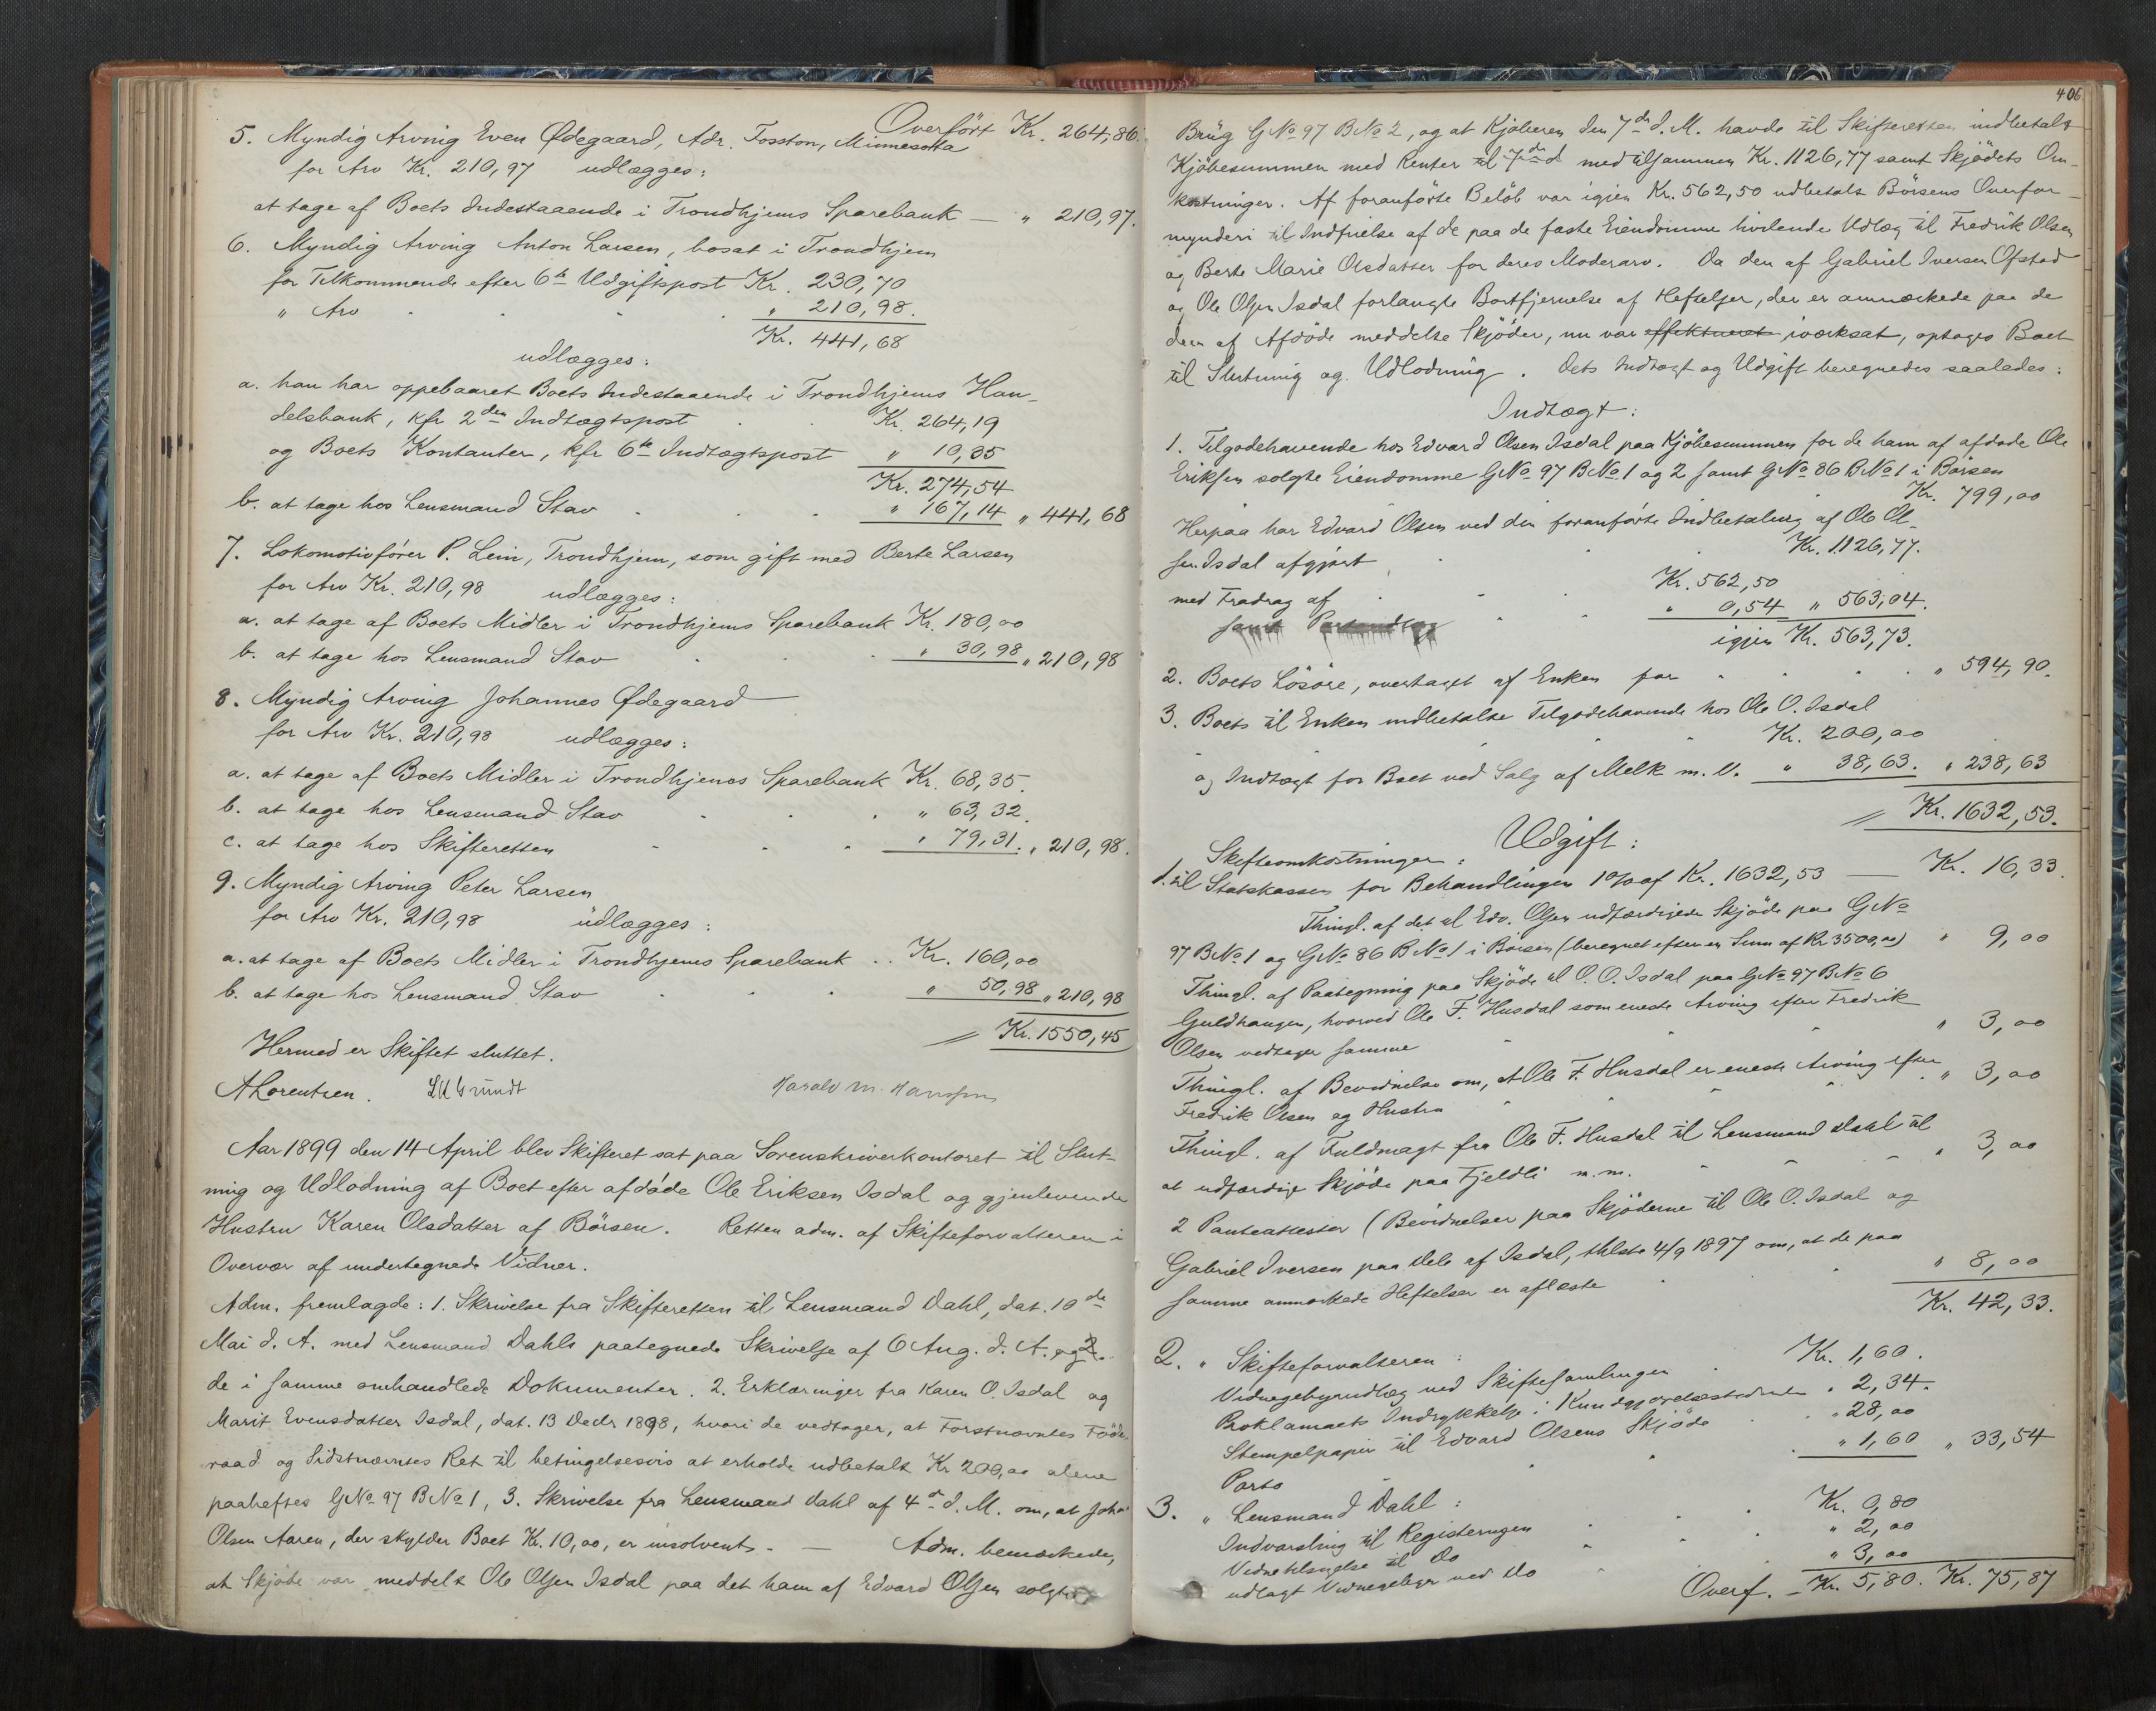 Overført Kr. 264,86.
5. Myndig Arving Even Ødegaard, Adr. Fosston, Minnesotta
for Arv Kr. 210,97 udlægges:
at tage af Boets Indestaaende i Trondhjems Sparebank — " 210,97.
6. Myndig Arving Anton Larsen, bosat i Trondhjem
for Tilkommende efter 6te Udgiftspost Kr. 230,70
" Arv " 210,98.
Kr. 441,68
udlægges:
a. han har oppebaaret Boets Indestaaende i Trondhjems Han-
delsbank, kfr 2den Indtægtspost Kr. 264,19
og Boets Kontanter, kfr 6te Indtægtspost " 10,35
Kr. 274,54
b. at tage hos Lensmand Stav " 167,14 " 441,68
7. Lokomotivfører P. Lein, Trondhjem, som gift med Berte Larsen
for Arv Kr. 210,98 udlægges:
a. at tage af Boets Midler i Trondhjems Sparebank Kr. 180,00
b. at tage hos Lensmand Stav " 30,98 " 210,98
8. Myndig Arving Johannes Ødegaard
for Arv Kr. 210,98 udlægges:
a. at tage af Boets Midler i Trondhjems Sparebank Kr. 68,35.
b. at tage hos Lensmand Stav " 63,32.
c. at tage hos Skifteretten " 79,31. " 210,98.
9. Myndig Arving Peter Larsen
for Arv Kr. 210,98 udlægges:
a. at tage af Boets Midler i Trondhjems Sparebank .. Kr. 160,00
b. at tage hos Lensmand Stav " 50,98 " 210,98
Kr. 1550,45
Hermed er Skiftet sluttet.
ALorentzen. Harald M. Hansen
Aar 1899 den 14 April blev Skifteret sat paa Sorenskriverkontoret til Slut-
ning og Udlodning af Boet efter afdøde Ole Eriksen Isdal og gjenlevende
Hustru Karen Olsdatter af Børsen. Retten adm. af Skifteforvalteren i
Overvær af undertegnede Vidner.
Adm. fremlagde: 1. Skrivelse fra Skifteretten til Lensmand Dahl, dat. 10de
Mai d. A. med Lensmand Dahls paategnede Skrivelse af 6 Aug. d. A. og
de i samme omhandlede Dokumenter. 2. Erklæringer fra Karen O. Isdal og
Marit Evensdatter Isdal, dat. 13 Decbr 1898, hvori de vedtager, at Førstnævntes Føde-
raad og Sidstnævntes Ret til betingelsesvis at erholde udbetalt Kr 200,00 alene
paaheftes GNo 97 BNo 1, 3. Skrivelse fra Lensmand Dahl af 4de d. M. om, at Joh.
Olsen Aaren, der skylder Boet Kr. 10,00, er insolvent. — Adm. bemærkede,
at Skjøde var meddelt Ole Olsen Isdal paa det ham af Edvard Olsen solgte
406
Brug GNo 97 BNo 2, og at Kjøberen den 7de d. M. havde til Skifteretten indbetalt
Kjøbesummen med Renter til 7de d med tilsammen Kr. 1126,77 samt Skjødets Om-
kostninger. Af foranførte Beløb var igjen Kr. 562,50 udbetalt Børsens Overfor-
mynderi til Indfrielse af de paa de faste Eiendomme hvilende Udlæg til Fredrik Olsen
og Berte Marie Olsdatter for deres Moderarv. Da den af Gabriel Iversen Ofstad
og Ole Olsen Isdal forlangte Bortfjernelse af Heftelser, der er anmærkede paa de
dem af Afdøde meddelte Skjøder, nu var effektueret iværksat, optages Boet
til Slutning og Udlodning. Dets Indtægt og Udgift beregnedes saaledes:
Indtægt:
1. Tilgodehavende hos Edvard Olsen Isdal paa Kjøbesummen for de ham af afdøde Ole
Eriksen solgte Eiendomme GNo 97 BNo 1 og 2 samt GNo 86 BNo 1 i Børsen
Kr. 799,00
Herpaa har Edvard Olsen ved den foranførte Indbetaling af Ole Ol-
sen Isdal afgjort Kr. 1126,77.
med Fradrag af Kr. 562,50
samt " 0,54 " 563,04.
igjen Kr. 563,73.
" 594,90.
2. Boets Løsøre, overtaget af Enken for
3. Boets til Enken indbetalte Tilgodehavende hos Ole O. Isdal
Kr. 200,00
og Indtægt for Boet ved Salg af Melk m. V. " 38,63. " 238,63
Kr. 1632,53.
Udgift:
Skifteomkostninger:
1. til Statskassen for Behandlingen 1 % af Kr. 1632,53 — Kr. 16,33.
Thingl. af det til Edv. Olsen udfærdigede Skjøde paa GNo
97 BNo 1 og GNo 86 BNo 1 i Børsen (beregnet efter en Sum af Kr 3500,00) " 9,00
Thingl. af Paategning paa Skjøde til O. O. Isdal paa GNo 97 BNo 6
Guldhaugen, hvorved Ole F. Husdal som eneste Arving efter Fredrik
Olsen vedtager samme " 3,00
Thingl. af Bevidnelse om, at Ole F. Husdal er eneste Arving efter
Fredrik Olsen og Hustru " 3,00
Thingl. af Fuldmagt fra Ole F. Husdal til Lensmand Dahl til
at udfærdige Skjøde paa Fjeldli m.m. " 3,00
2 Panteattester (Bevidnelser paa Skjøderne til Ole O. Isdal og
Gabriel Iversen paa Dele af Isdal, thlste 4/9 1897 om, at de paa
samme anmærkede Heftelser er aflæste " 8,00
Kr. 42,33.
2. " Skifteforvalteren:
Vidnegebyrudlæg ved Skiftesamlingen Kr. 1,60.
Proklamaets Indrykkelse i Kundgjørelsestidende " 2,34.
Stempelpapir til Edvard Olsens Skjøde " 28,00
Porto " 1,60 " 33,54
3. " Lensmand Dahl:
Indvarsling til Registeringen Kr. 0,80
Vidnetilsigelse til Do " 2,00
udlagt Vidnegebyr ved Do " 3,00
Overf. — Kr. 5,80. Kr. 75,87